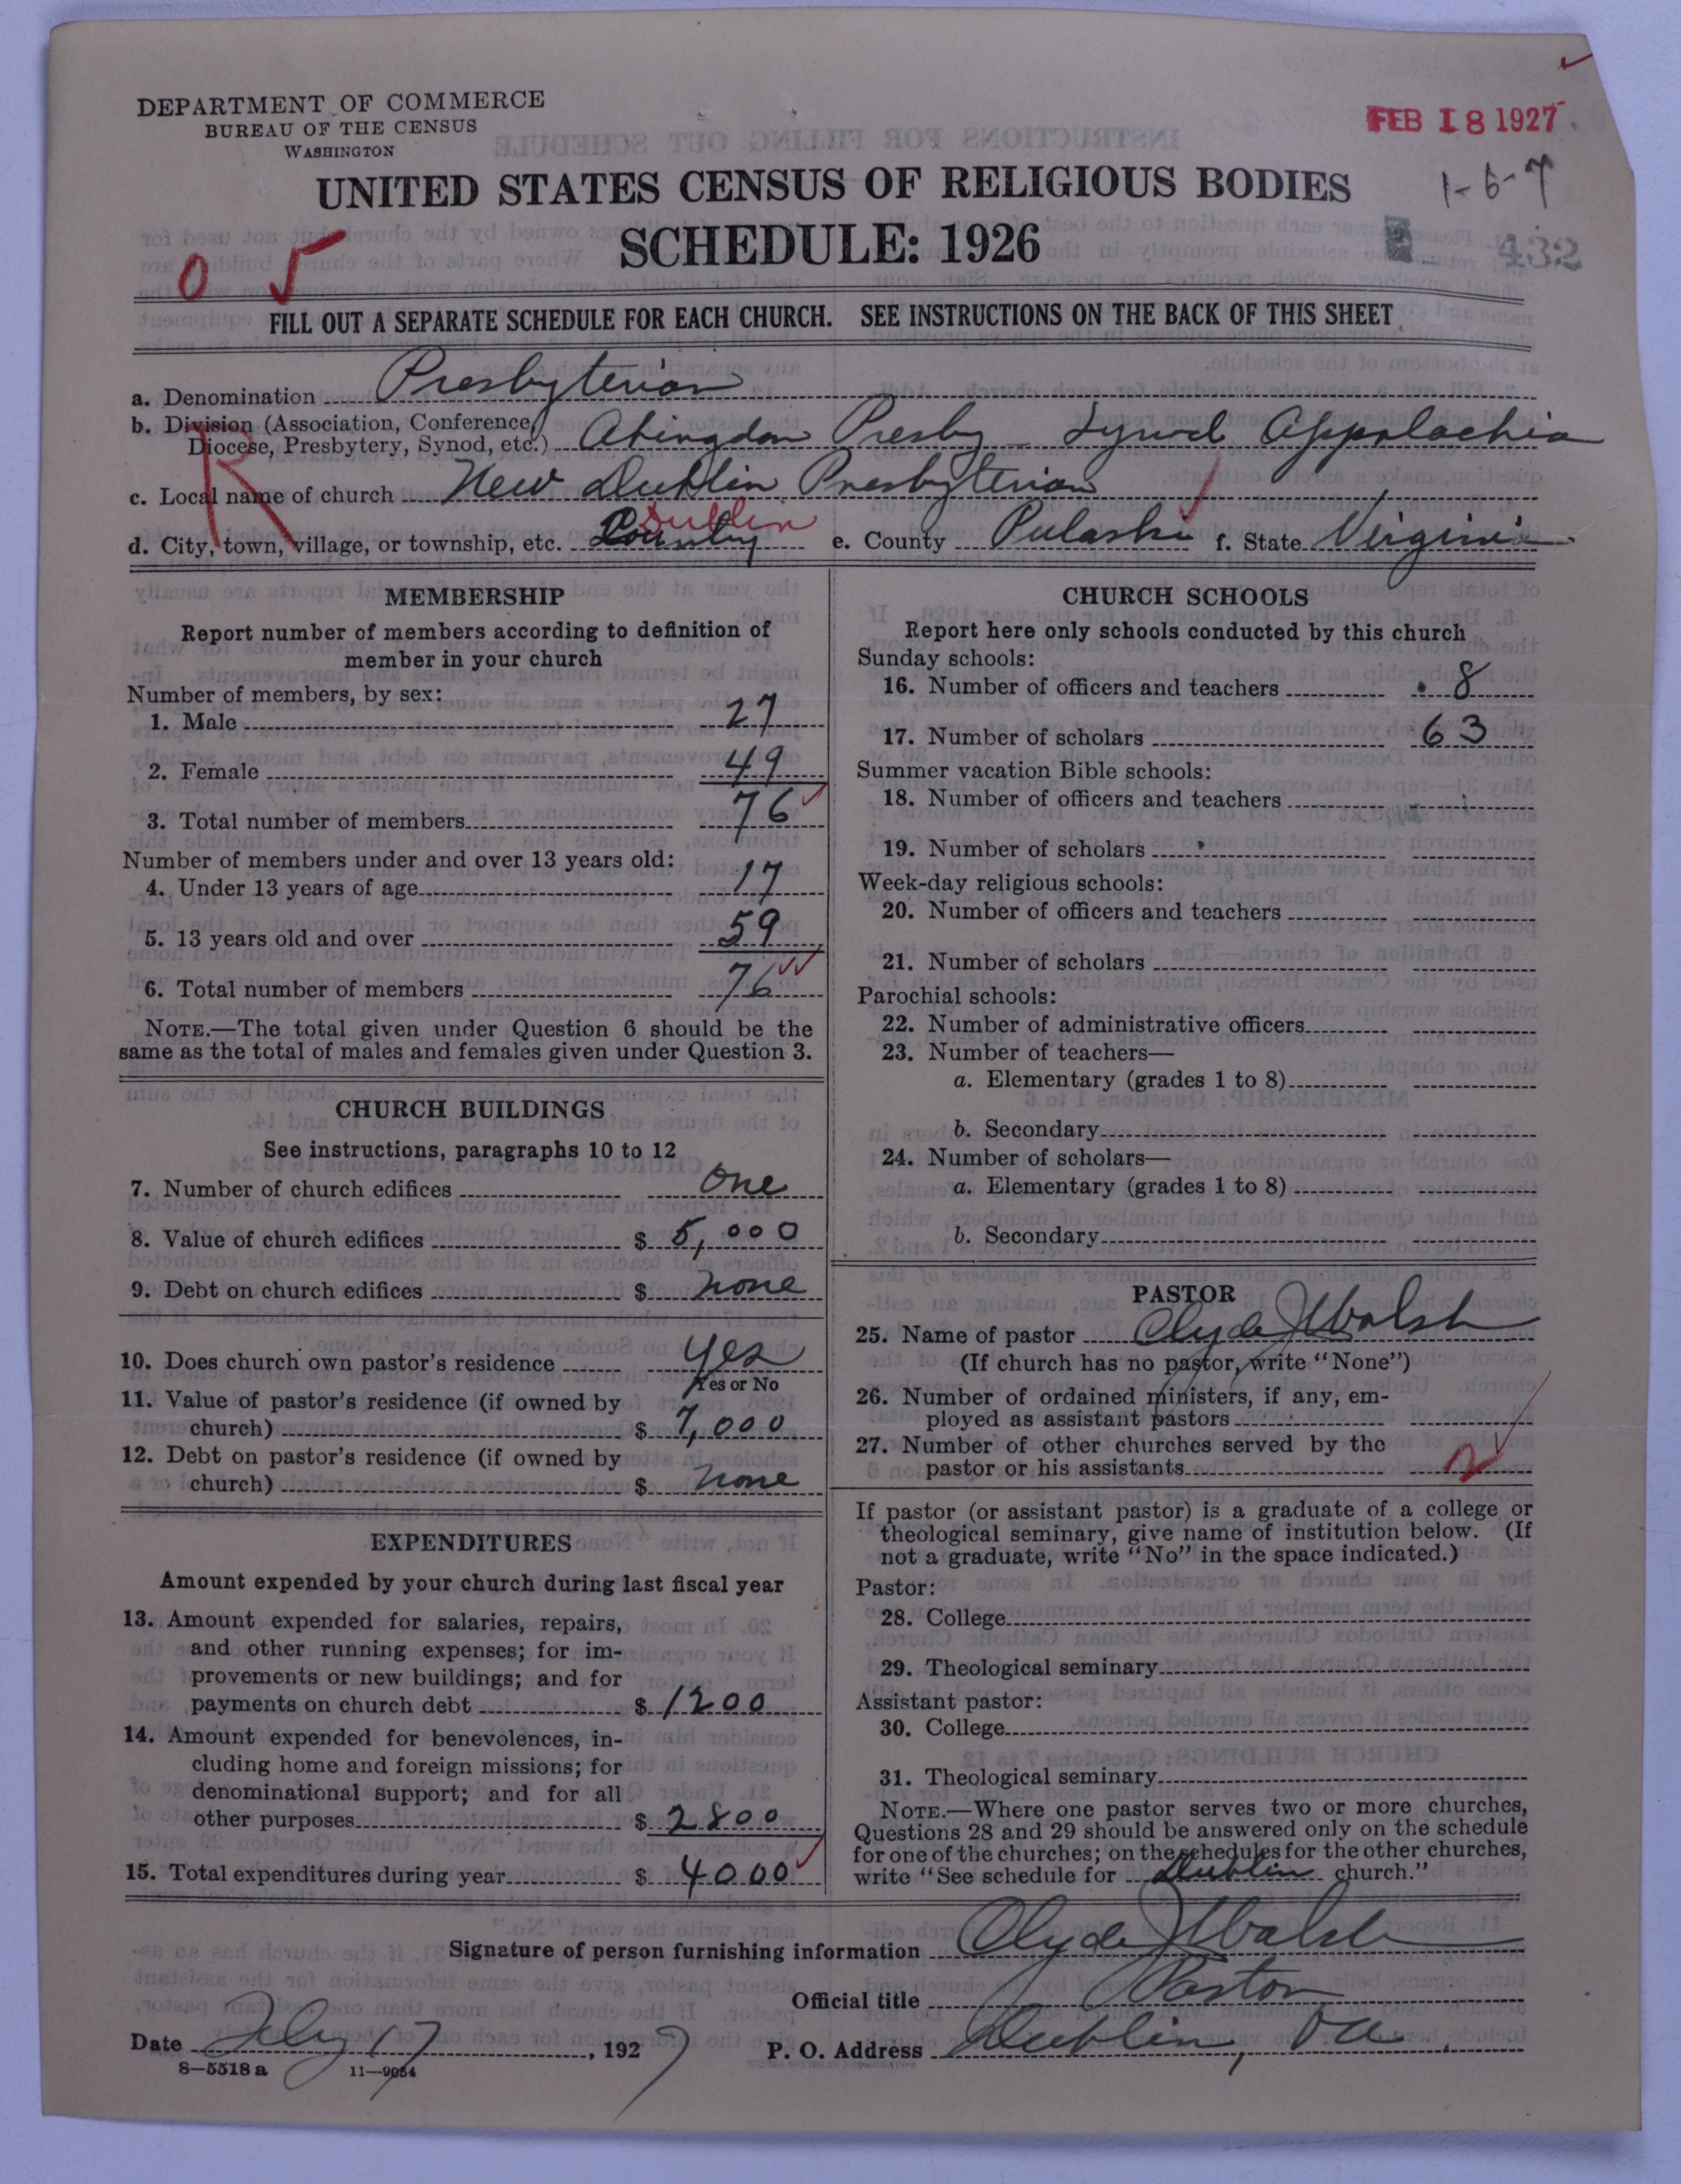 DEPARTMENT OF COMMERCE
BUREAU OF THE CENSUS
WASHINGTON
FEB 18 1927
1-6-7
UNITED STATES CENSUS OF RELIGIOUS BODIES
SCHEDULE: 1926
432
0 5
FILL OUT A SEPARATE SCHEDULE FOR EACH CHURCH. SEE INSTRUCTIONS ON THE BACK OF THIS SHEET
a. Denomination Presbyterian
b. Division (Association, Conference,
Diocese, Presbytery, Synod, etc.) Abingdon Presby – Synod Appalachia
R
c. Local name of church New Dublin Presbyterian
d. City, town, village, or township, etc. Country Dublin e. County Pulaski f. State Virginia
MEMBERSHIP
Report number of members according to definition of
member in your church
Number of members, by sex:
1. Male 27
2. Female 49
3. Total number of members 76
Number of members under and over 13 years old:
4. Under 13 years of age 17
5. 13 years old and over 59
6. Total number of members 76
NOTE.—The total given under Question 6 should be the
same as the total of males and females given under Question 3.
CHURCH BUILDINGS
See instructions, paragraphs 10 to 12
7. Number of church edifices One
8. Value of church edifices $ 5,000
9. Debt on church edifices $ none
10. Does church own pastor's residence Yes
Yes or No
11. Value of pastor's residence (if owned by
church) $ 7,000
12. Debt on pastor's residence (if owned by
church) $ none
EXPENDITURES
Amount expended by your church during last fiscal year
13. Amount expended for salaries, repairs,
and other running expenses; for im-
provements or new buildings; and for
payments on church debt $ 1200
14. Amount expended for benevolences, in-
cluding home and foreign missions; for
denominational support; and for all
other purposes $ 2800
15. Total expenditures during year $ 4000
CHURCH SCHOOLS
Report here only schools conducted by this church
Sunday schools:
16. Number of officers and teachers 8
17. Number of scholars 63
Summer vacation Bible schools:
18. Number of officers and teachers
19. Number of scholars
Week-day religious schools:
20. Number of officers and teachers
21. Number of scholars
Parochial schools:
22. Number of administrative officers
23. Number of teachers—
a. Elementary (grades 1 to 8)
b. Secondary
24. Number of scholars—
a. Elementary (grades 1 to 8)
b. Secondary
PASTOR
25. Name of pastor Clyde J Walsh
(If church has no pastor, write "None")
26. Number of ordained ministers, if any, em-
ployed as assistant pastors
27. Number of other churches served by the
pastor or his assistants 2
If pastor (or assistant pastor) is a graduate of a college or
theological seminary, give name of institution below. (If
not a graduate, write "No" in the space indicated.)
Pastor:
28. College
29. Theological seminary
Assistant pastor:
30. College
31. Theological seminary
NOTE.—Where one pastor serves two or more churches,
Questions 28 and 29 should be answered only on the schedule
for one of the churches; on the schedules for the other churches,
write "See schedule for Dublin church."
Signature of person furnishing information Clyde J Walsh
Official title Pastor
Date Feby 17, 1927
P. O. Address Dublin, Va.
8—5518 a 11—9054